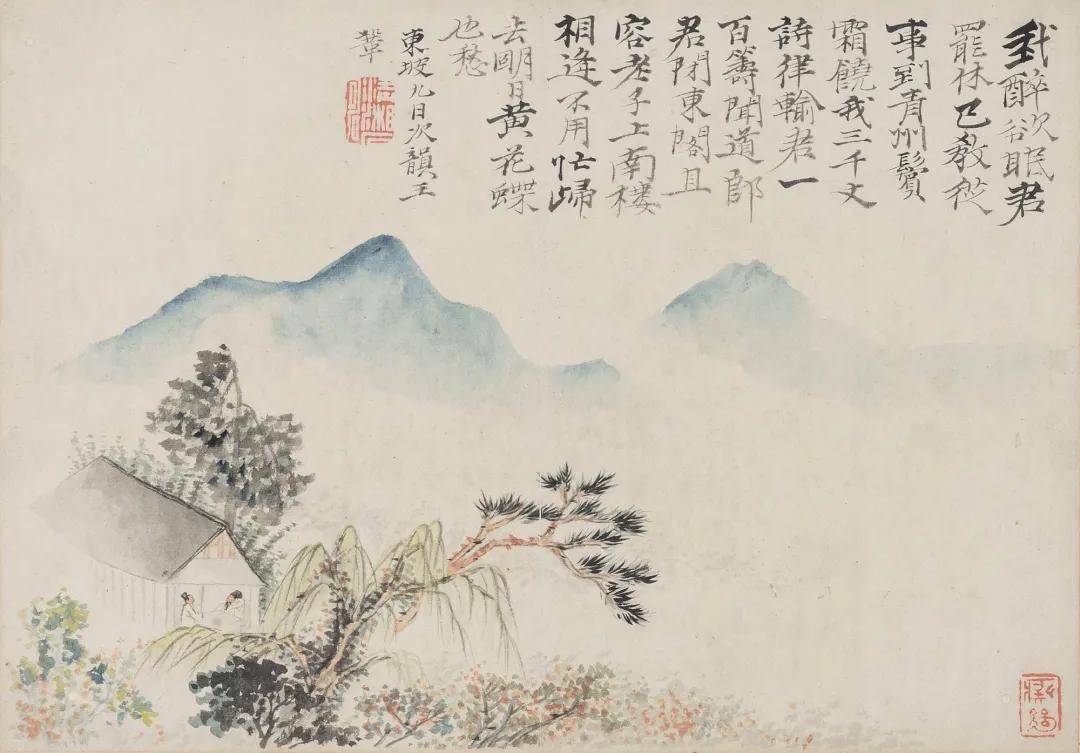 我醉欲眠君
罷休已教從
事到青州鬢
霜饒我三千丈
詩律輸君一
百籌聞道郎
君閉東閣且
容老子上南樓
相逢不用忙歸
去朙日黃花蝶
也愁
東坡九日次韻王
鞏